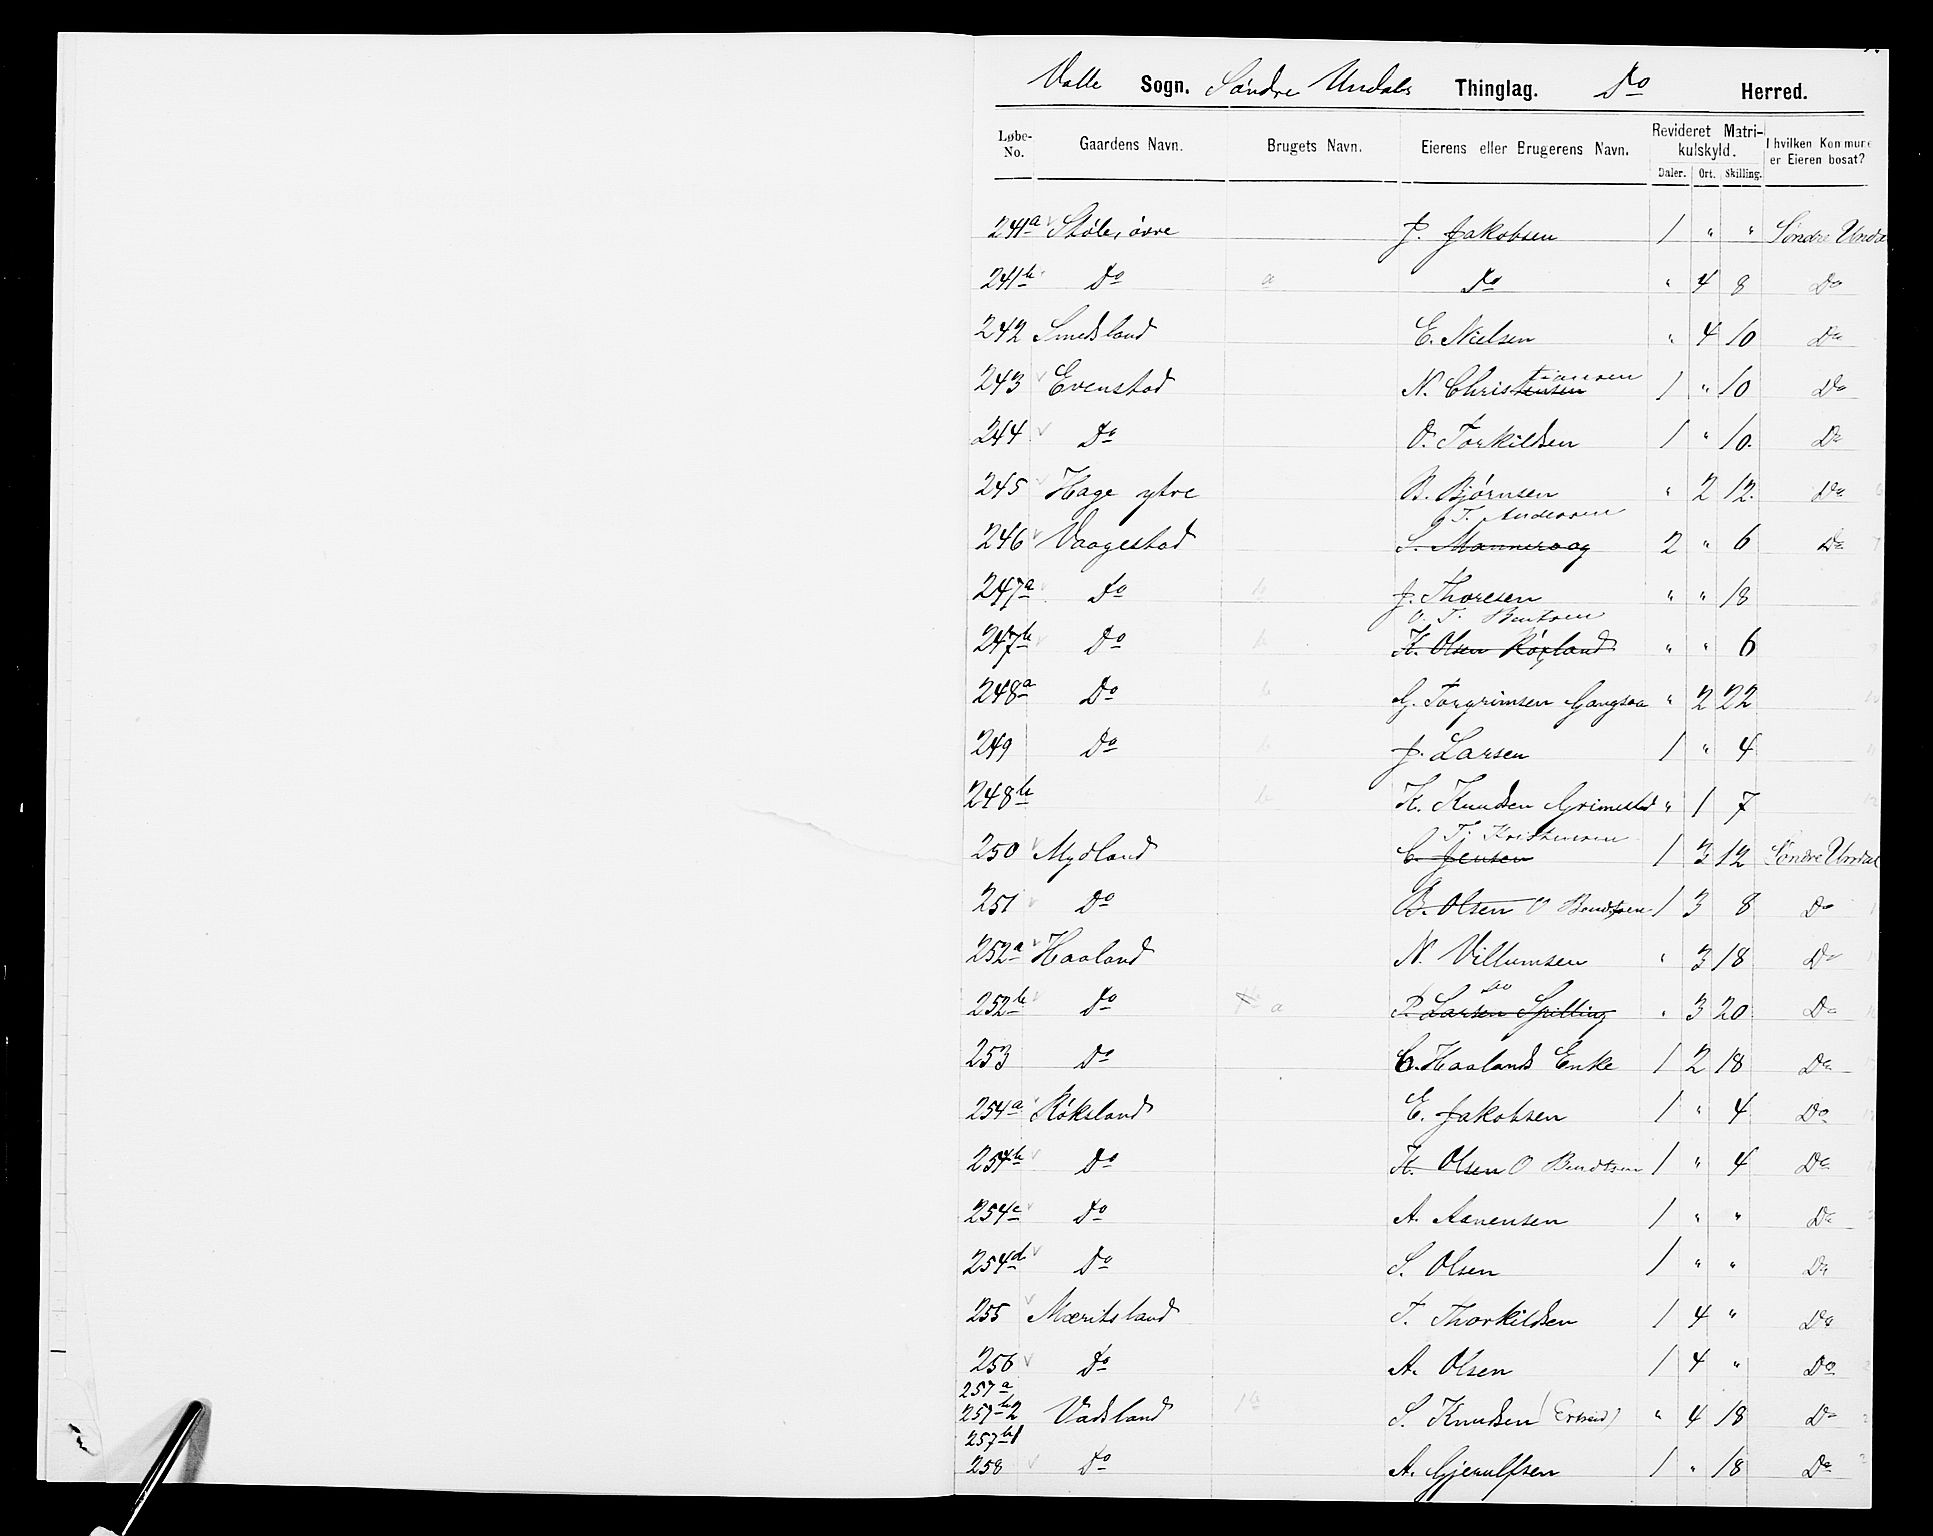 Valle Sogn. Søndre Undals Thinglag. Do Herred.
Løbe-No. Gaardens Navn. Brugets Navn. Eierens eller Brugerens Navn. Revideret Matrikulskyld. Daler. Ort. Skilling. I hvilken Kommune er Eieren bosat?
241a Støle, øvre J. Jakobsen 1 " " Søndre Undal
241b Do a Do " 4 8 Do
242 Smedsland E. Nielsen " 4 10 Do
243 Evenstad N. Christensen tiansen 1 " 10 Do
244 Do O. Torkildsen 1 " 10 Do
245 Hage ytre B. Bjørnsen " 2 12 Do
T. Andersen
246 Vaagestad S. Mannevaag 2 " 6 Do
247a Do b J. Thoresen " " 18
O. T. Bentsen
247b Do b K. Olsen Røxland " " 6
248a Do b G. Torgrimsen Gangsaa " 2 22
249 Do b J. Larsen 1 " 4
248b b K. Knudsen Grimestad " 1 7
Tj Kristensen
250 Mydland C. Jensen 1 3 12 Søndre Undal
251 Do B. Olsen O Bendtsen 1 3 8 Do
252a Haaland N. Villumsen " 3 18 Do
Do
252b Do a P. Larsen Spilling " 3 20 Do
253 Do C. Haalands Enke 1 2 18 Do
254a Røksland E. Jakobsen 1 " 4 Do
254b Do K. Olsen O Bendtsen 1 " 4 Do
254c Do A. Aanensen 1 " " Do
254d Do S. Olsen 1 " " Do
255 Mæritsland T. Thorkildsen 1 4 " Do
256 Do A. Olsen 1 4 " Do
257a
257b2 Vadsland S. Knudsen (Ertzeid) " 4 18 Do
257b1
258 Do A. Gjerulfsen 1 " 18 Do